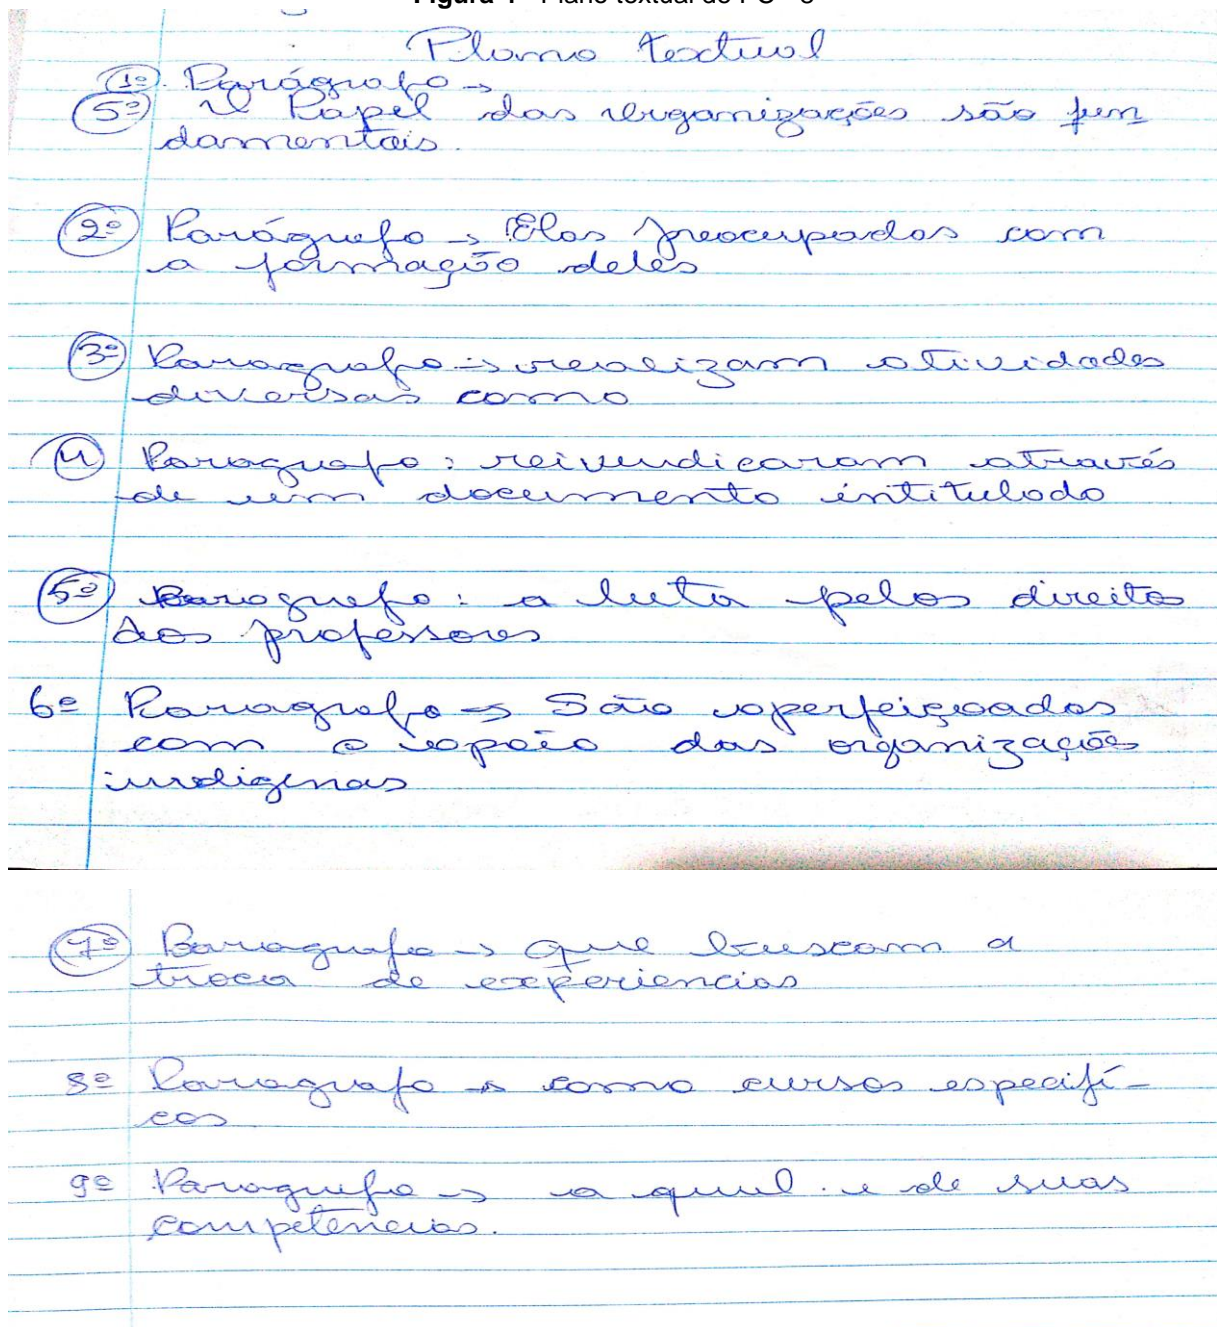 Plano textual
1º Parágrafo →
5º O Papel das organizações são fun
damentais.
2º Parágrafo → Elas preocupadas com
a formação deles
3º Paragrafo → realizam atividades
diversas como
4 Paragrafo: reivendicaram através
de um documento intitulado
5º Paragrafo: a luta pelos direitos
dos professores
6º Paragrafo → São aperfeiçoados
com o apoio das organizações
indigenas
7º Paragrafo → que buscam a
troca de experiencias
8º Paragrafo → como cursos específi-
cos
9º Paragrafo → a qual e de suas
competências.